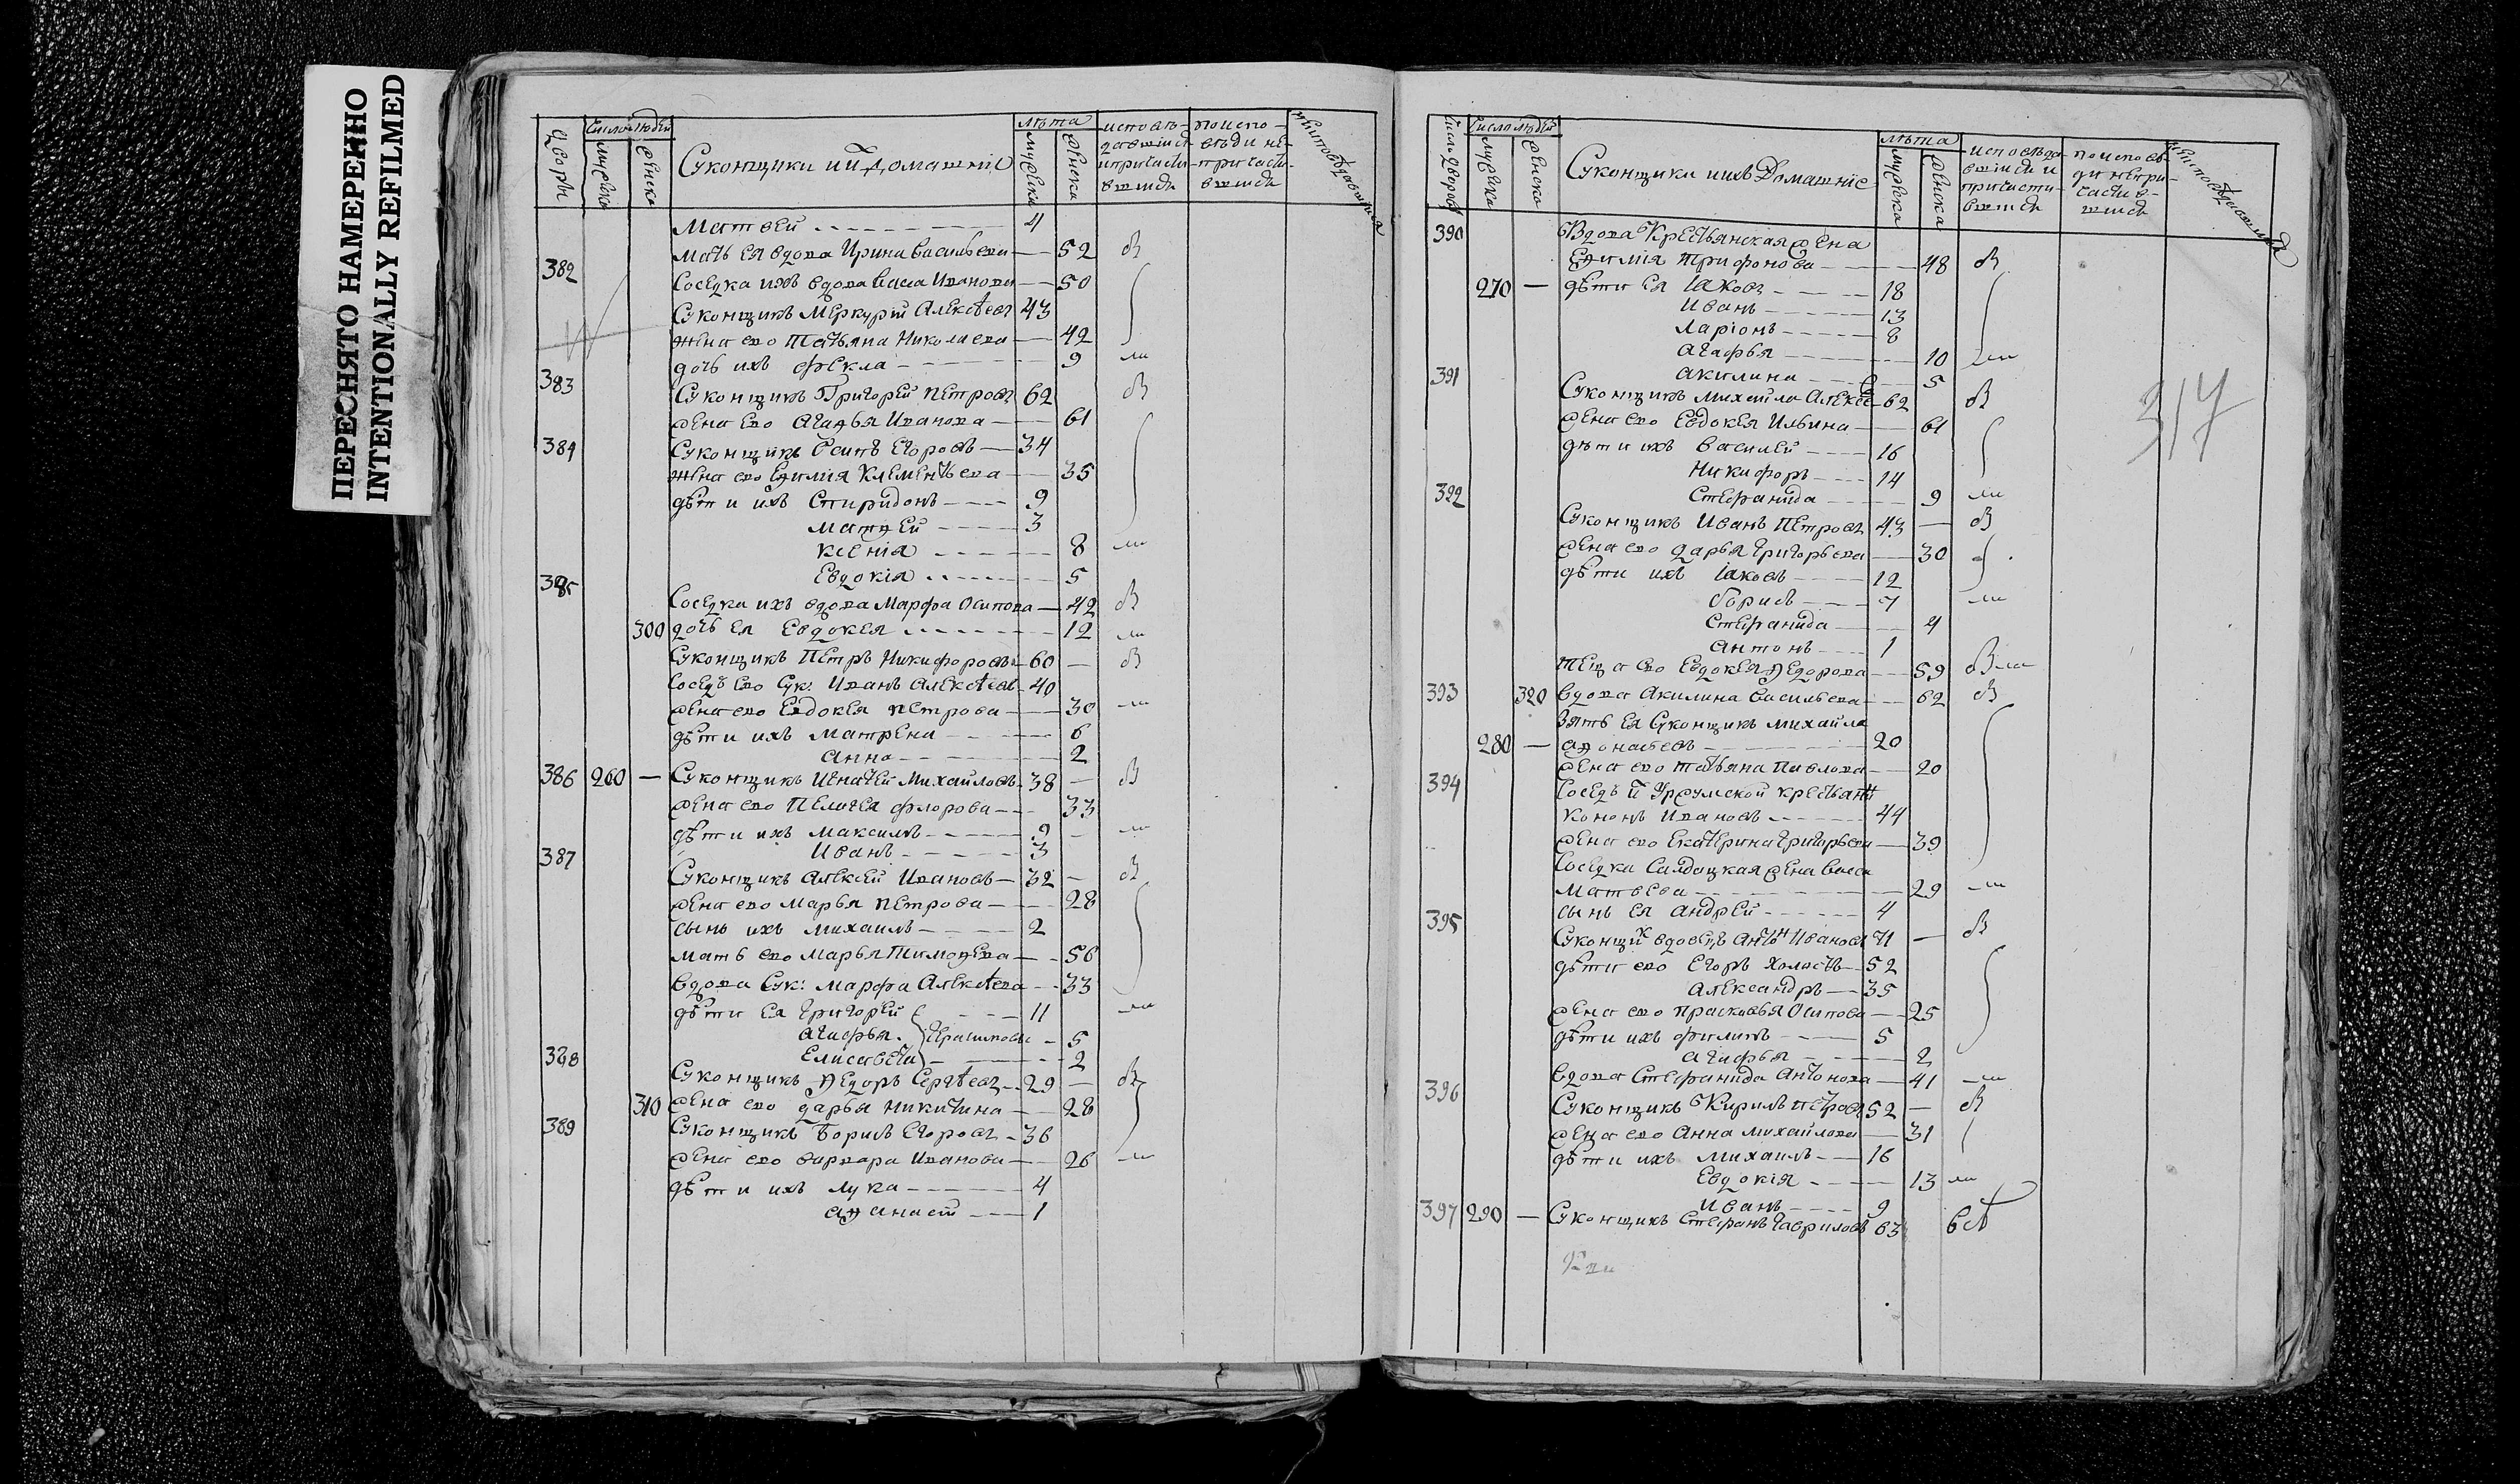 ПЕРЕСНЯТО НАМЕРЕННО
INTENTIONALLY REFILMED
дворы
Число людей
мужеска
женска
Суконщики и их домашніе
лѣта
мужеска
женска
исповѣдавшихся и причастившихся
по исповѣди не причастившихся
Матвей 4
мать ея вдова Ирина Васильева 52
382 Соседка ихъ вдова Васса Иванова 50
Суконщикъ Меркурій Алексѣевъ 43
жена ево Татьяна Николаева 42
дочь ихъ Фекла 9
383 Суконщикъ Григорей Петровъ 62
жена ево Агафья Иванова 61
384 Суконщикъ Осипъ Егоровъ 34
жена ево Еѳимія Клементьева 35
дѣти ихъ Спиридонъ 9
Матѳей 3
Ксенія 8
Евдокія 5
385 Соседка ихъ вдова Марфа Осипова 42
300 дочь ея Евдокея 12
Суконщикъ Петръ Никифоровъ 60
Соседъ ево Сук: Иванъ Алексѣевъ 40
жена ево Евдокея Петрова 30
дѣти ихъ Матрена 6
Анна 2
386 260 — Суконщикъ Игнатей Михайловъ 38
жена ево Пелагея Флорова 33
дѣти ихъ Максимъ 9
Иванъ 3
387 Суконщикъ Алексей Ивановъ 32
жена ево Марья Петрова 28
сынъ ихъ Михаилъ 2
мать ево Марья Тимоѳева 56
вдова Сук: Марфа Алексѣева 33
дѣти ея Григорей 11
Агафья Герасимовы 5
Елисавета 2
388 Суконщикъ Ѳедоръ Сергѣевъ 29
310 жена ево Дарья Никитина 28
389 Суконщикъ Борисъ Егоровъ 36
жена ево Варвара Иванова 26
дѣти ихъ Лука 4
Аѳанасей 1
Число дворовъ
Число людей
мужеска
женска
Суконщики и ихъ Домашніе
лѣта
мужеска
женска
исповѣдавшихся и причастившихся
по исповѣди не причастившихся
390 Вдова Крестьянская жена
Еѳимія Трифонова 48
270 — дѣти ея Іаковъ 18
Иванъ 13
Ларіонъ 8
Агафья 10
Акилина 5
391 Суконщикъ Михайла Алексѣе 62
жена ево Евдокея Ильина 61
дѣти ихъ Василей 16
Никифоръ 14
Стефанида 9
392 Суконщикъ Иванъ Петровъ 43 —
жена ево Дарья Григорьева 30
дѣти ихъ Іаковъ 12
Борисъ 7
Стефанида 4
Антонъ 1
теща ево Евдокея Ѳедорова 59
393 320 вдова Акилина Васильева 62
Зять ея Суконщикъ Михайла
280 — Аѳонасьевъ 20
жена ево Татьяна Павлова 20
394 Соседъ
Кононъ Ивановъ 44
жена ево Екатерина Григорьева 39
Соседка Салдацкая жена Васса
Матвеева 29
сынъ ея Андрей 4
395 Суконщикъ вдовецъ Антонъ Ивановъ 71
дѣти ево Егоръ холостъ 52
Александръ 35
жена ево Прасковья Осипова 25
дѣти ихъ Филипъ 5
Агафья 2
вдова Стефанида Антонова 41
396 Суконщикъ Кирилъ Петровъ 52
жена ево Анна Михайлова 31
дѣти ихъ Михаилъ 16
Евдокія 13
Иванъ 9
397 290 — Суконщикъ Стефанъ Гавриловъ 63
317